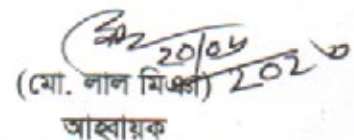 20/05
2026
(মো. লাল মিঞা)
আহবায়ক